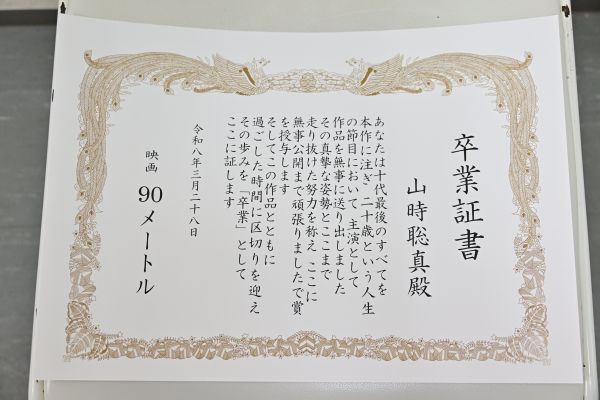 卒業証書
山時聡真殿
あなたは十代最後のすべてを
本作に注ぎ 二十歳という人生
の節目において 主演として
作品を無事に送り出しました
その真摯な姿勢とここまで
走り抜けた努力を称え ここに
無事公開まで頑張りましたで賞
を授与します
そしてこの作品とともに
過ごした時間に区切りを迎え
その歩みを「卒業」として
ここに証します
令和八年三月二十八日
映画 90メートル